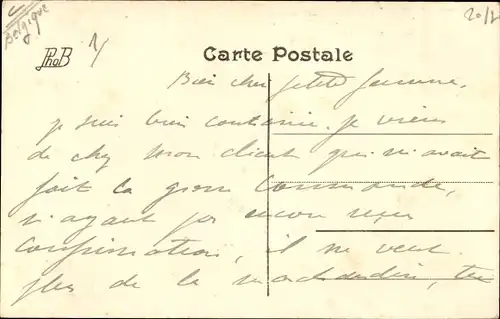 Belgique
PhoB
Carte Postale
cher petite femme,
je suis bien contrarié. je viens
de chez mon client qui m'avait
fait la grosse commande,
n'ayant pas encore reçu
confirmation, il ne veut
plus de la marchandise,